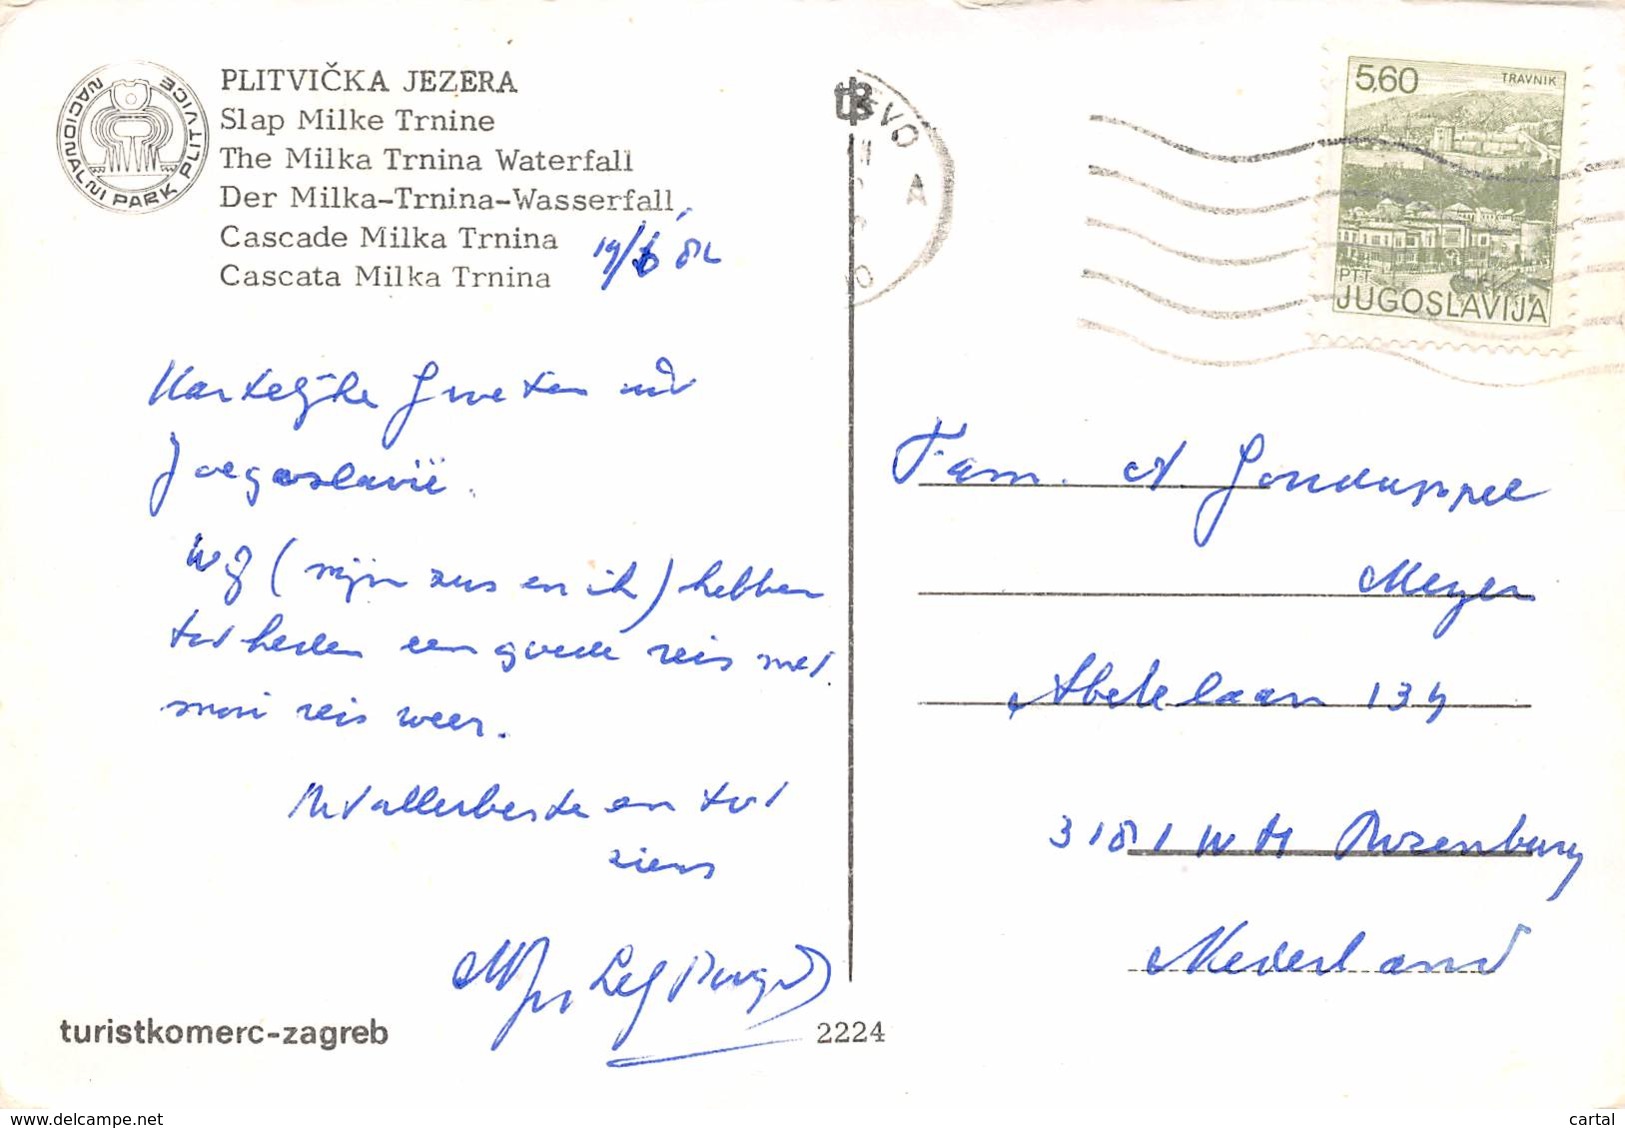 NACIONALNI PARK PLITVICE
PLITVIČKA JEZERA
Slap Milke Trnine
The Milka Trnina Waterfall
Der Milka-Trnina-Wasserfall
Cascade Milka Trnina
Cascata Milka Trnina
19/6 82
Hartelijke Groeten uit
Joegoslavië.
Wij (mijn zus en ik) hebben
tot heden een goede reis met
mooi reis weer.
allerbeste en tot
ziens
turistkomerc-zagreb
2224
A
5,60
TRAVNIK
PTT
JUGOSLAVIJA
Fam. A
Meyer
Abelelaan 134
3181 WH Rozenburg
Nederland
www.delcampe.net
cartal